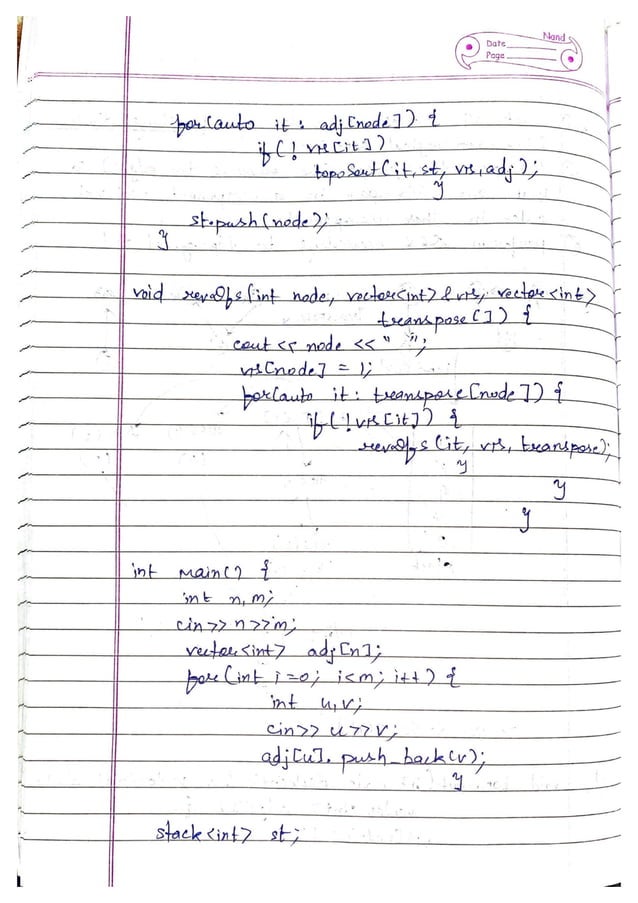 Nand
Date
Page
for(auto it : adj[node]) {
if(! vis[it])
topoSort(it, st, vis, adj);
}
st.push(node);
}
void revDfs(int node, vector<int> &vis, vector<int>
transpose[]) {
cout << node << " ";
vis[node] = 1;
for(auto it : transpose[node]) {
if(!vis[it]) {
revDfs(it, vis, transpose);
}
}
}
int main() {
int n,m;
cin>> n>>m;
vector<int> adj[n];
for(int i=0; i<m; i++) {
int u,v;
cin>> u>>v;
adj[u].push_back(v);
}
stack<int> st;